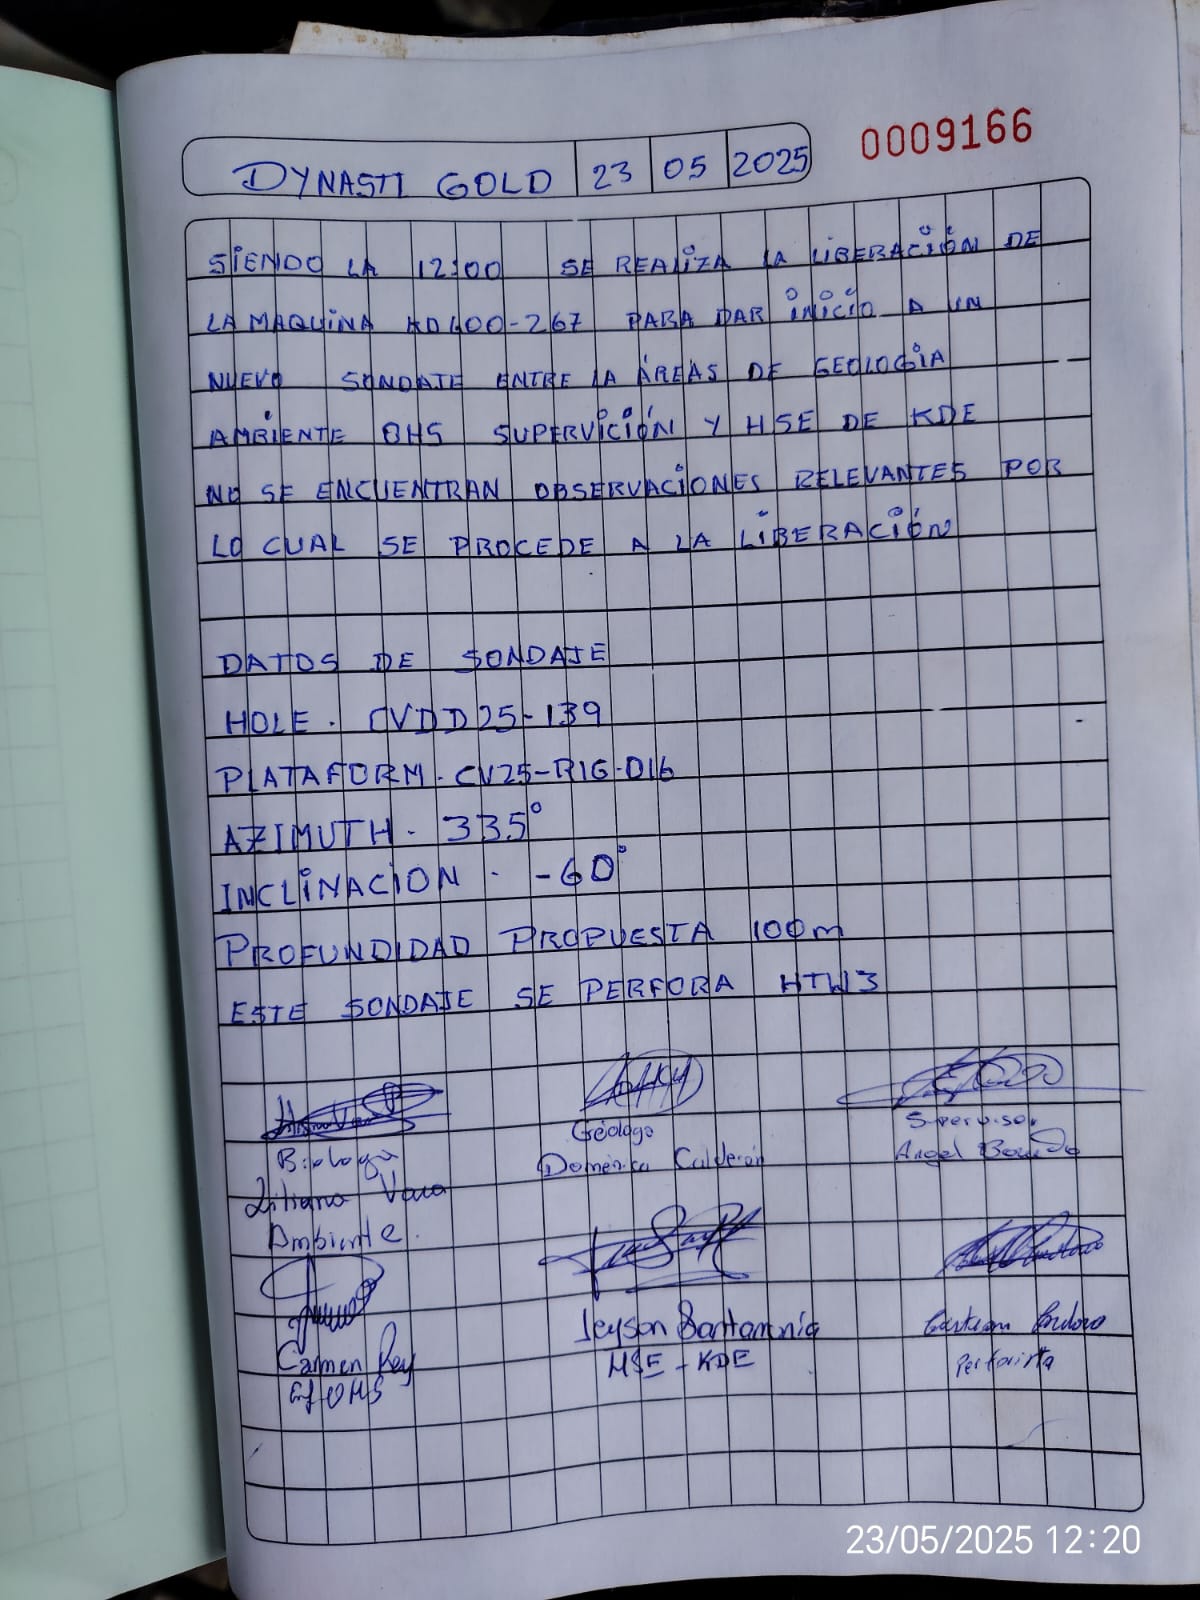 0009166
DYNASTI GOLD 23 05 2025
SIENDO LA 12:00 SE REALIZA LA LIBERACIÓN DE
LA MAQUINA KD600-267 PARA DAR INICIO A UN
NUEVO SONDAJE ENTRE LA ÁREAS DE GEOLOGIA
AMBIENTE OHS SUPERVICIÓN Y HSE DE KDE
NO SE ENCUENTRAN OBSERVACIONES RELEVANTES POR
LO CUAL SE PROCEDE A LA LIBERACIÓN
DATOS DE SONDAJE
HOLE. CVDD25-139
PLATAFORM. CV25-RIG-016
AZIMUTH. 335°
INCLINACION. -60°
PROFUNDIDAD PROPUESTA 100m
ESTE SONDAJE SE PERFORA HTW3
Biologa
Liliana Vara
Ambiente.
Geologo
Domenica Calderón
Supervisor
Angel
Carmen Rey
OHS
Jeyson Santamaria
HSE - KDE
Cordova
Perforista
23/05/2025 12:20